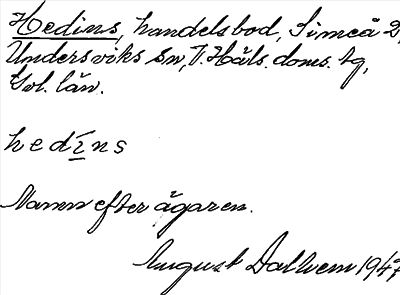 Hedins, handelsbod, Simeå 2,
Undersviks sn, V. Häls. doms. tg,
Gvl. län.
hedíns
Namn efter ägaren.
August Dalhem 1947